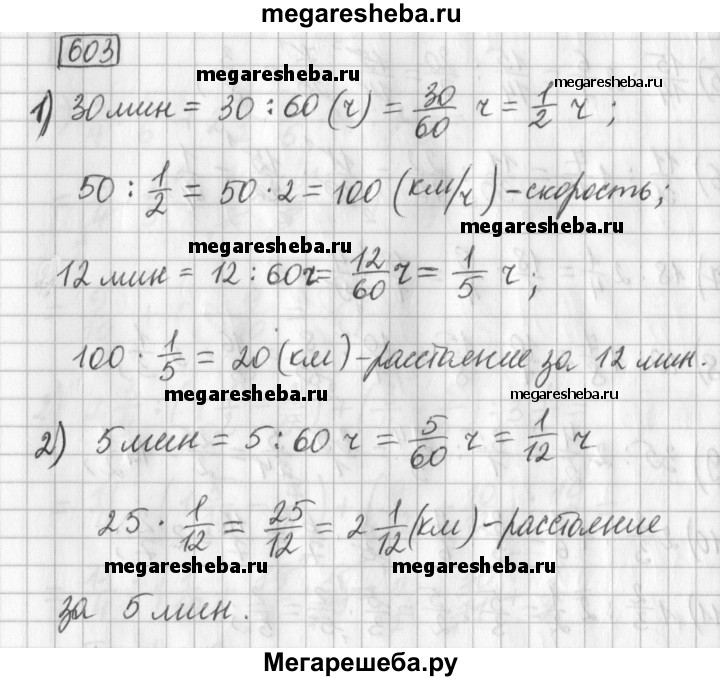 megaresheba.ru
603
megaresheba.ru
megaresheba.ru
1) 30 мин = 30 : 60 (ч) = 30/60 ч = 1/2 ч ;
50 : 1/2 = 50 · 2 = 100 (км/ч) - скорость;
megaresheba.ru
megaresheba.ru
12 мин = 12 : 60 ч = 12/60 ч = 1/5 ч ;
100 · 1/5 = 20 (км) - расстояние за 12 мин.
megaresheba.ru
megaresheba.ru
2) 5 мин = 5 : 60 ч = 5/60 ч = 1/12 ч
25 · 1/12 = 25/12 = 2 1/12 (км) - расстояние
megaresheba.ru
megaresheba.ru
за 5 мин.
Мегарешеба.ру